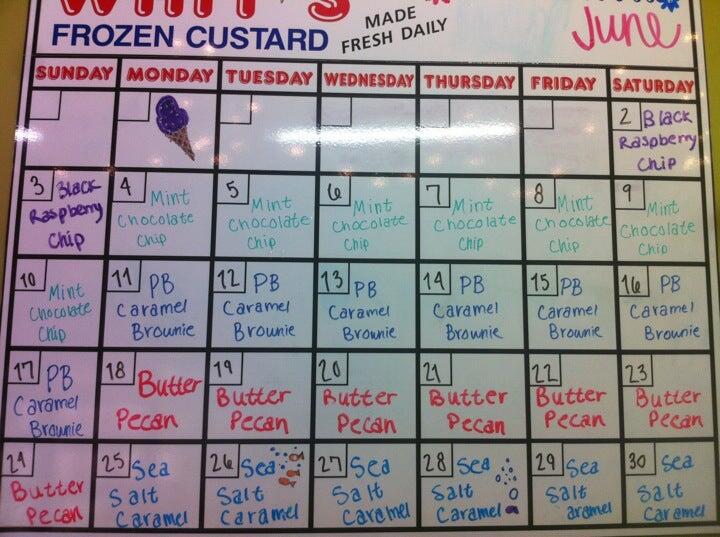 WHIT'S
FROZEN CUSTARD
MADE
FRESH DAILY
June
SUNDAY MONDAY TUESDAY WEDNESDAY THURSDAY FRIDAY SATURDAY
2 Black
Raspberry
Chip
3 Black
Raspberry
Chip
4 Mint
Chocolate
Chip
5 Mint
Chocolate
Chip
6 Mint
Chocolate
Chip
7 Mint
Chocolate
Chip
8 Mint
Chocolate
Chip
9 Mint
Chocolate
Chip
10 Mint
Chocolate
Chip
11 PB
Caramel
Brownie
12 PB
Caramel
Brownie
13 PB
Caramel
Brownie
14 PB
Caramel
Brownie
15 PB
Caramel
Brownie
16 PB
Caramel
Brownie
17 PB
Caramel
Brownie
18 Butter
Pecan
19 Butter
Pecan
20 Butter
Pecan
21 Butter
Pecan
22 Butter
Pecan
23 Butter
Pecan
24 Butter
Pecan
25 Sea
Salt
Caramel
26 Sea
Salt
Caramel
27 Sea
Salt
Caramel
28 Sea
Salt
Caramel
29 Sea
Salt
aramel
30 Sea
Salt
Caramel